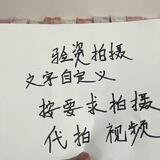 验资拍摄
文字自定义
按要求拍摄
代拍 视频